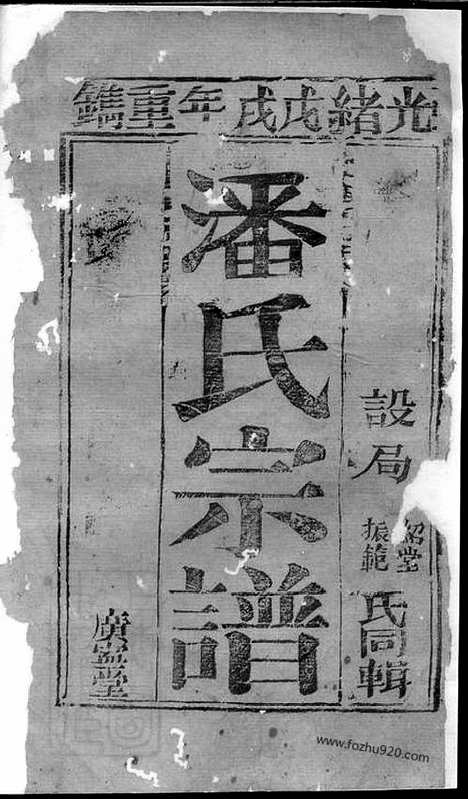 光緒戊戌年重鐫
設局
紹堂
振範
氏同輯
潘氏宗譜
廣宴堂
www.fozhu920.com